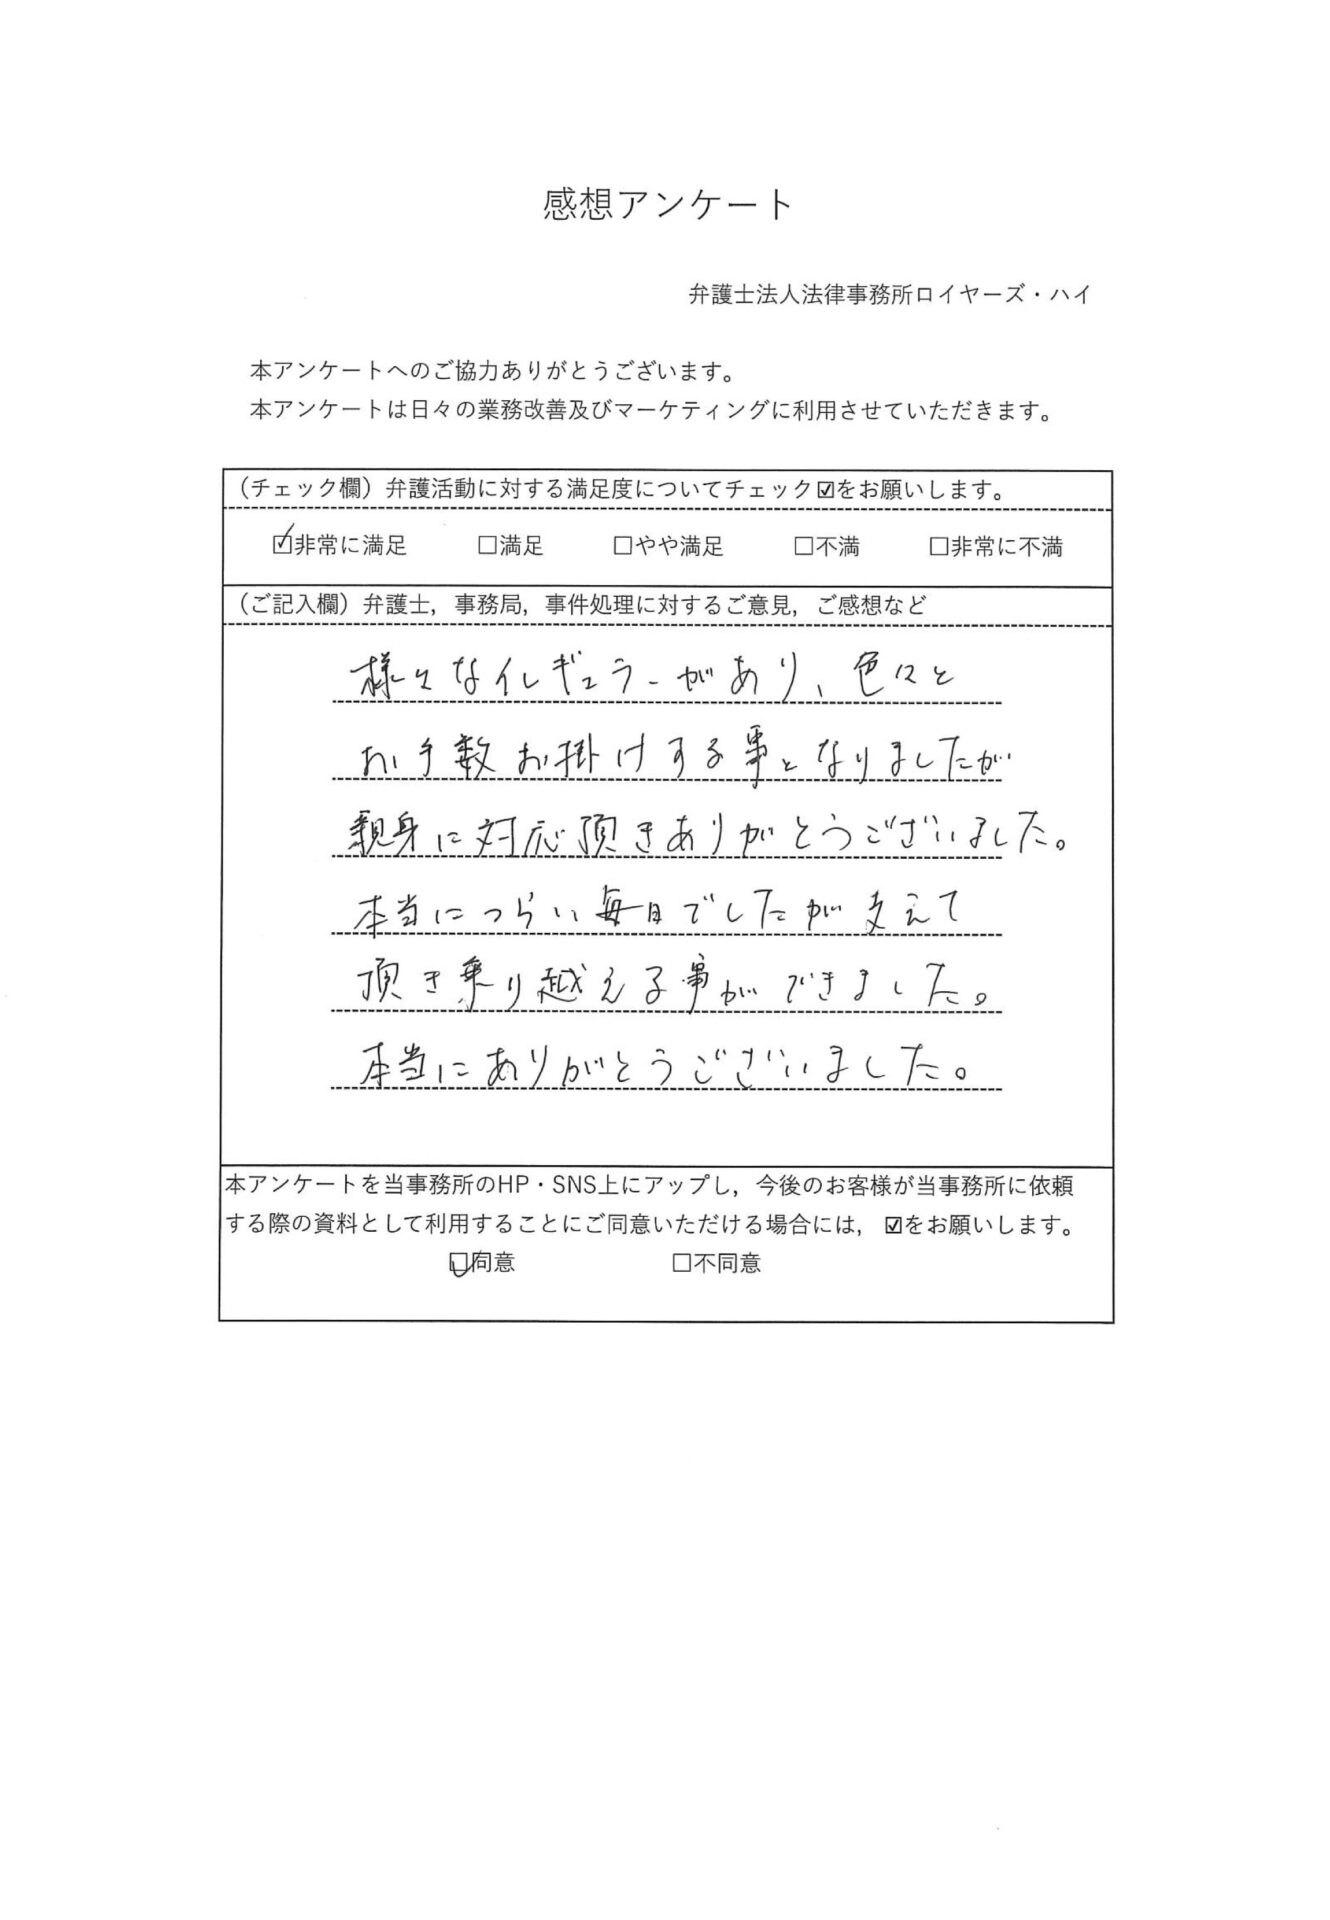 感想アンケート
弁護士法人法律事務所ロイヤーズ・ハイ
本アンケートへのご協力ありがとうございます。
本アンケートは日々の業務改善及びマーケティングに利用させていただきます。
（チェック欄）弁護活動に対する満足度についてチェック☑をお願いします。
☑非常に満足 □満足 □やや満足 □不満 □非常に不満
（ご記入欄）弁護士，事務局，事件処理に対するご意見，ご感想など
様々なイレギュラーがあり、色々と
お手数お掛けする事となりましたが
親身に対応頂きありがとうございました。
本当につらい毎日でしたが支えて
頂き乗り越える事ができました。
本当にありがとうございました。
本アンケートを当事務所のHP・SNS上にアップし，今後のお客様が当事務所に依頼
する際の資料として利用することにご同意いただける場合には，☑をお願いします。
☑同意 □不同意